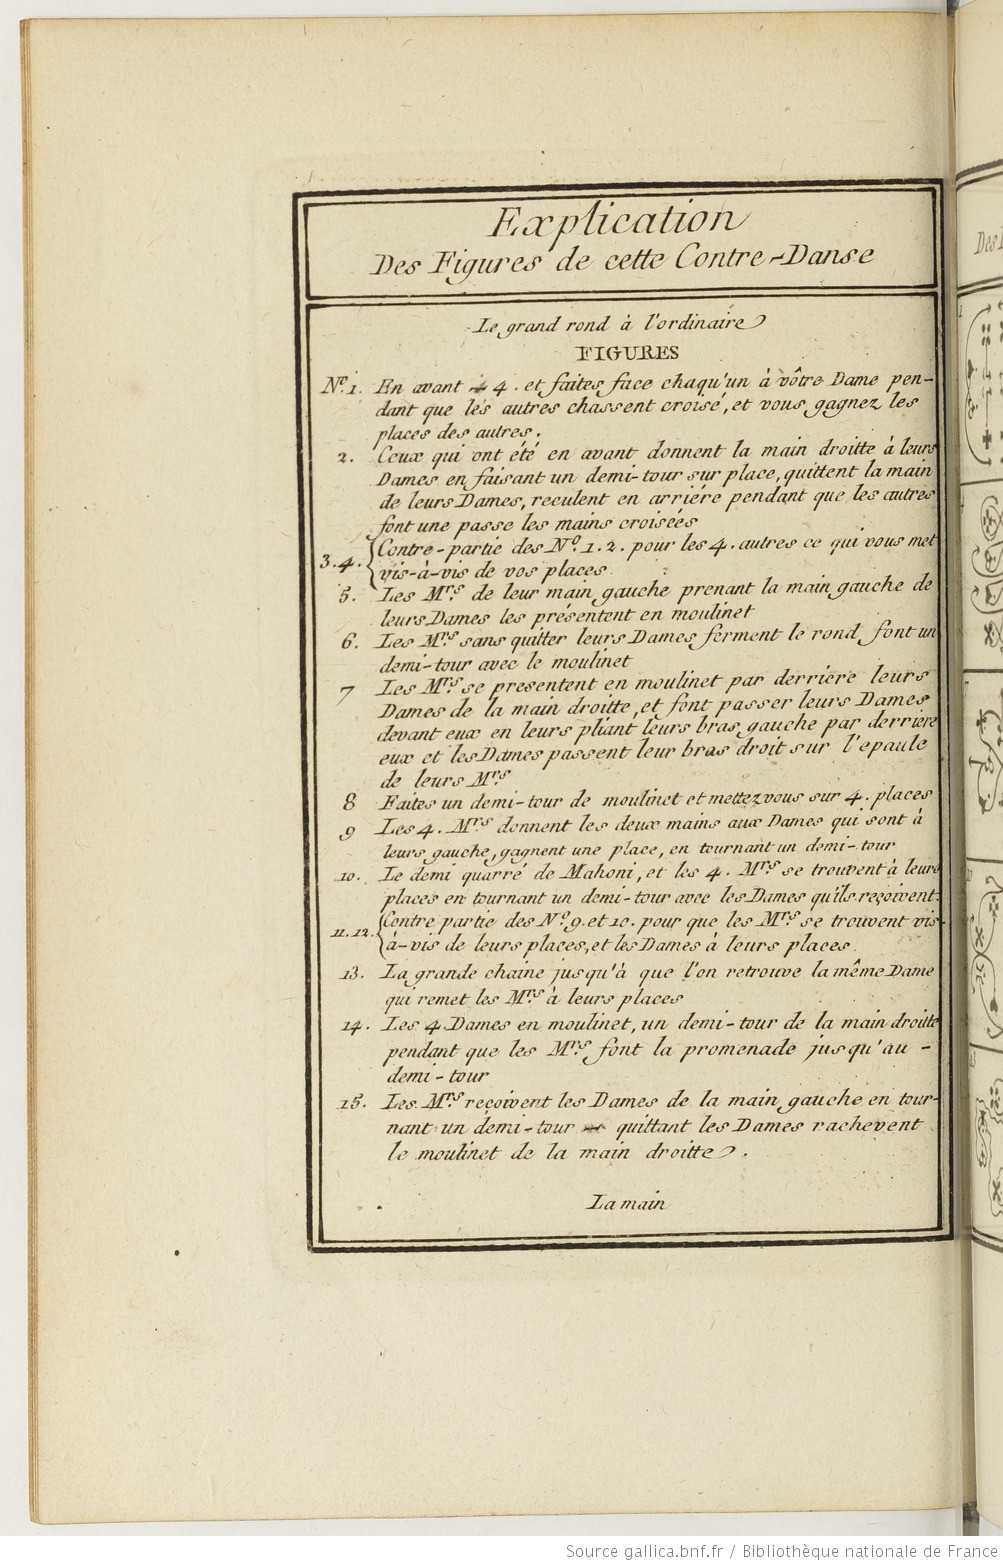 Explication
Des Figures de cette Contre-Danse
Le grand rond à l'ordinaire
FIGURES
N.º 1. En avant 4. et faites face chaqu'un à vôtre Dame pen-
dant que les autres chassent croisé, et vous gagnez les
places des autres.
2. Ceux qui ont été en avant donnent la main droitte à leurs
Dames en faisant un demi-tour sur place, quittent la main
de leurs Dames, reculent en arriére pendant que les autres
font une passe les mains croiseés
3.4. Contre-partie des N.º 1.2. pour les 4. autres ce qui vous met
vis-à-vis de vos places.
5. Les M.rs de leur main gauche prenant la main gauche de
leurs Dames les présentent en moulinet
6. Les M.rs sans quitter leurs Dames ferment le rond font un
demi-tour avec le moulinet
7 Les M.rs se presentent en moulinet par derriere leurs
Dames de la main droitte, et font passer leurs Dames
devant eux en leurs pliant leurs bras gauche par derriere
eux et les Dames passent leur bras droit sur l'epaule
de leurs M.rs
8 Faites un demi-tour de moulinet et mettez vous sur 4. places
9 Les 4. M.rs donnent les deux mains aux Dames qui sont à
leurs gauche, gagnent une place, en tournant un demi-tour
10. Le demi quarré de Mahoni, et les 4. M.rs se trouvent à leurs
places en tournant un demi-tour avec les Dames qu'ils reçoivent.
11.12. Contre partie des N.º 9. et 10. pour que les M.rs se trouvent vis-
à-vis de leurs places, et les Dames à leurs places.
13. La grande chaine jusqu'à que l'on retrouve la même Dame
qui remet les M.rs à leurs places
14. Les 4 Dames en moulinet, un demi-tour de la main droitte
pendant que les M.rs font la promenade jusqu'au -
demi-tour
15. Les M.rs reçoivent les Dames de la main gauche en tour-
nant un demi-tour quittant les Dames rachevent
le moulinet de la main droitte.
La main
Des
Source gallica.bnf.fr / Bibliothèque nationale de France